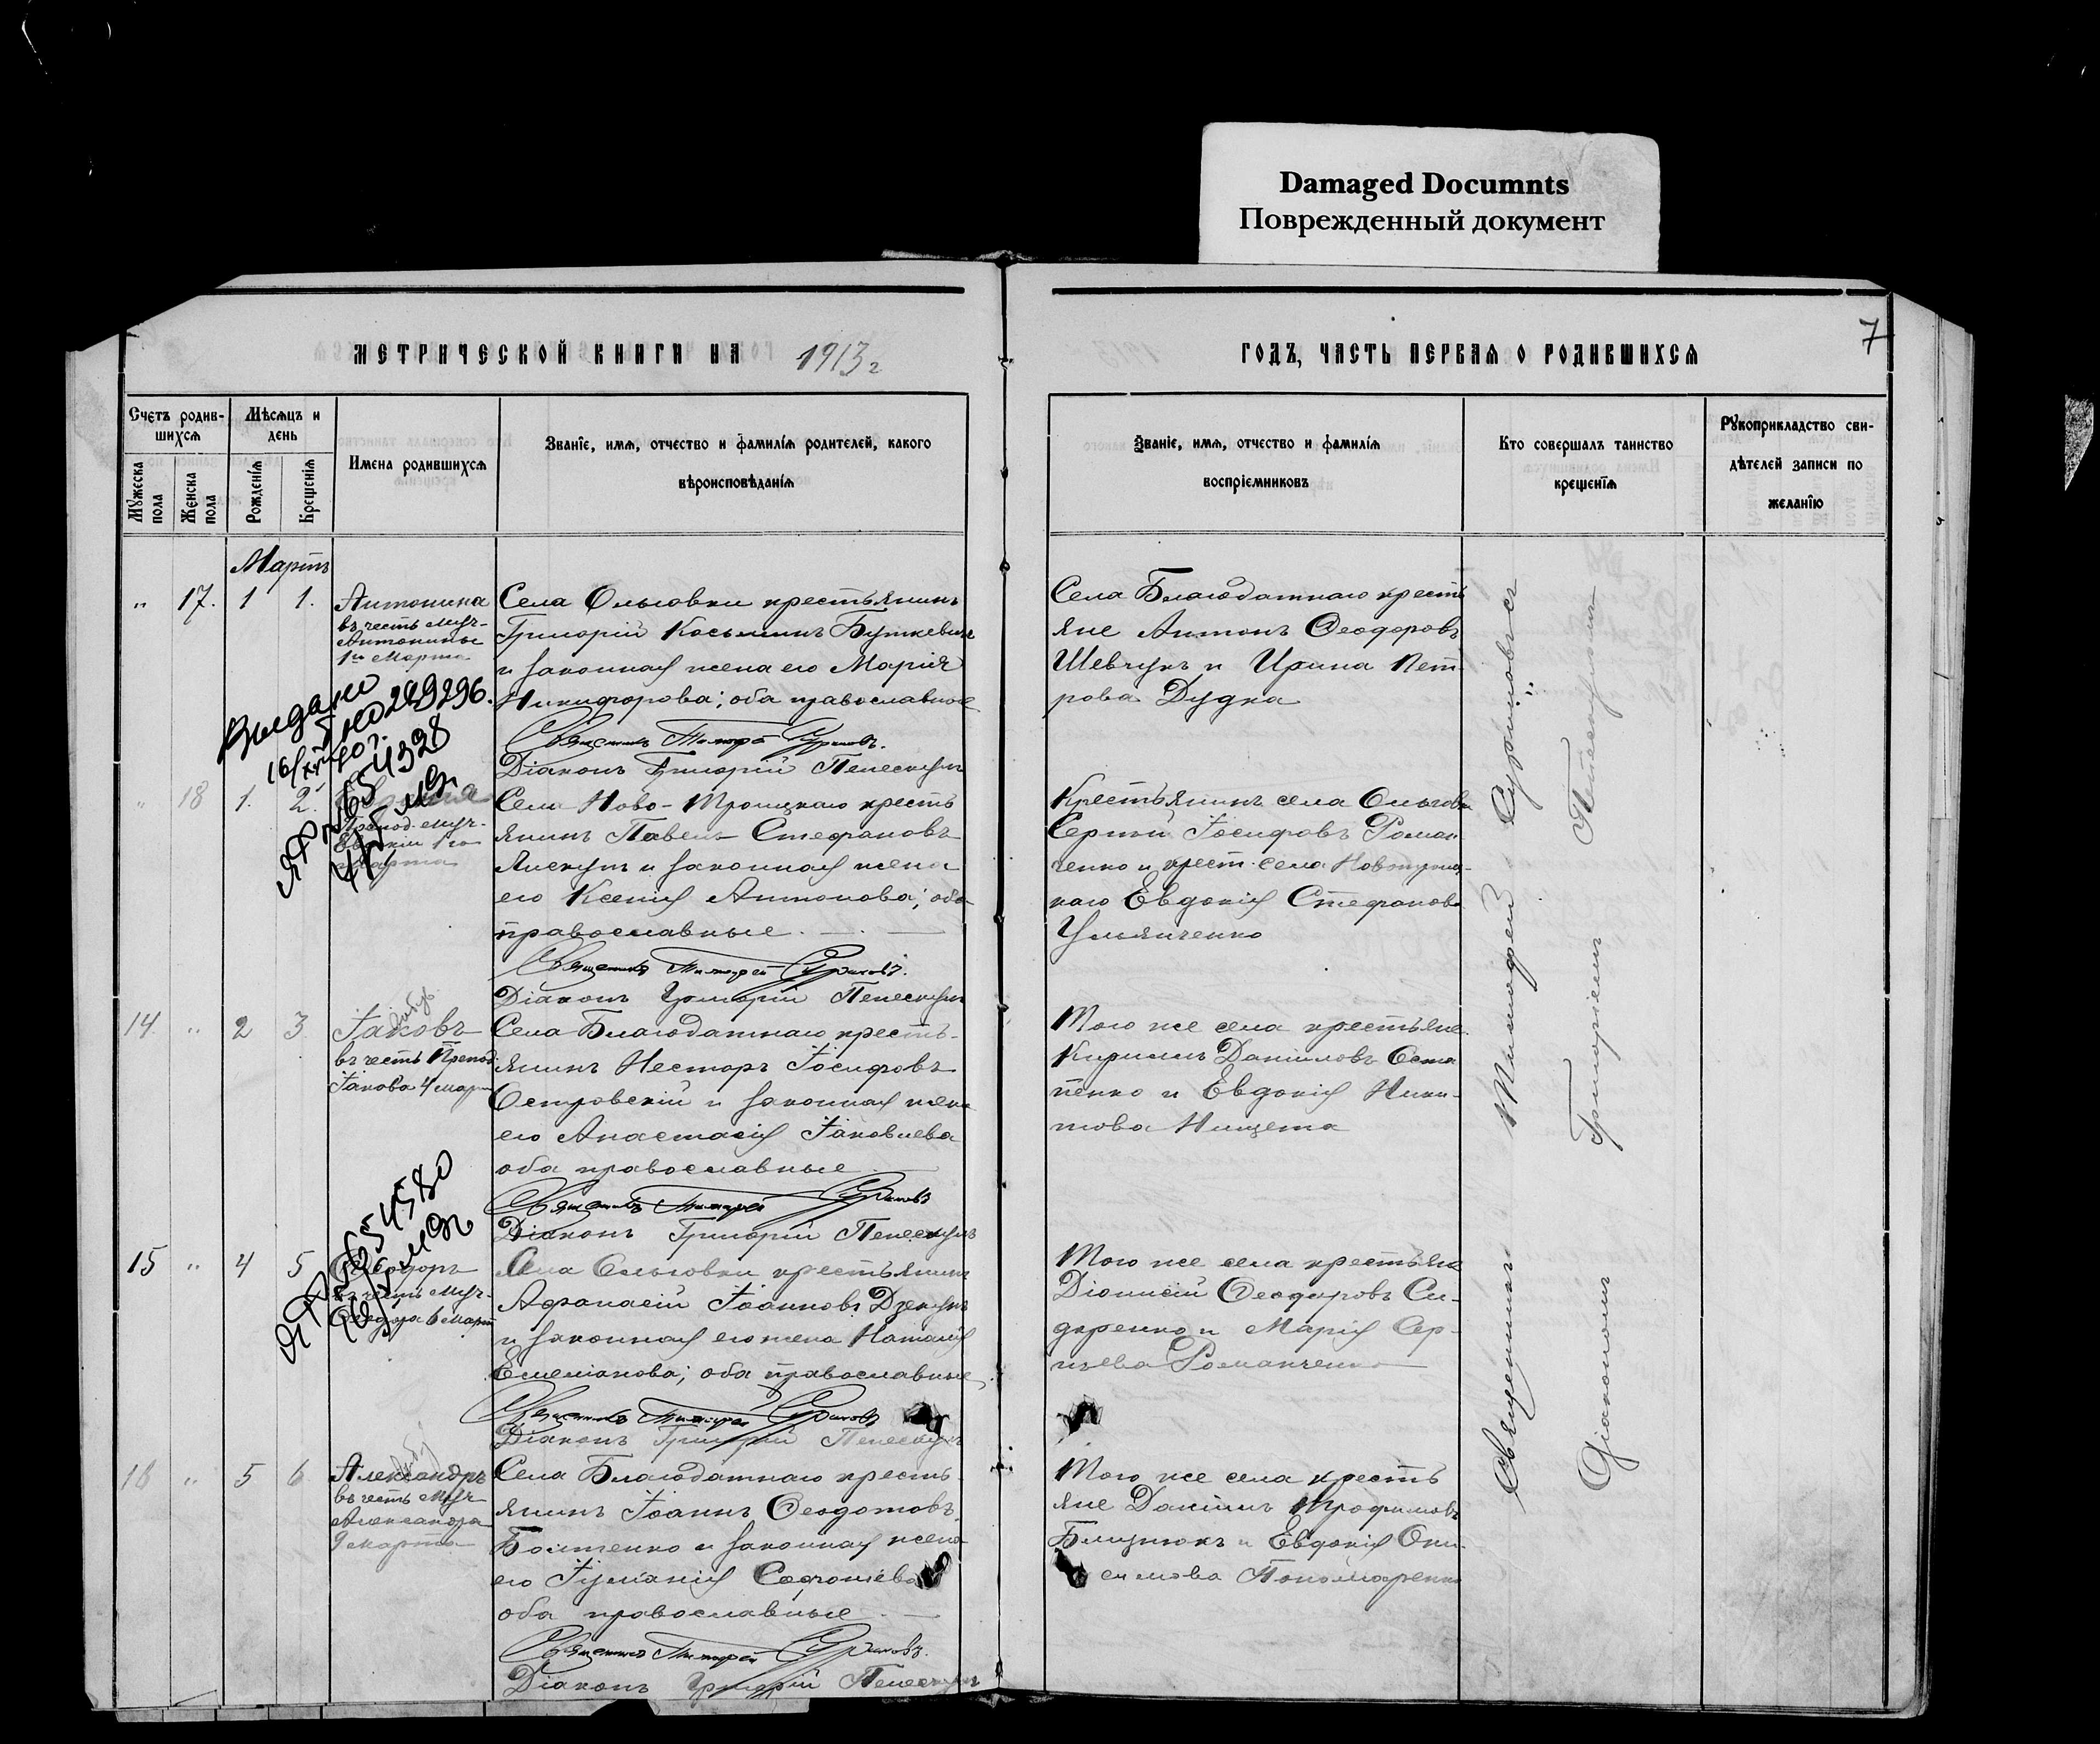 Damaged Documnts
Поврежденный документ
7
МЕТРИЧЕСКОЙ КНИГИ НА 1913 г
ГОДЪ, ЧАСТЬ ПЕРВАЯ О РОДИВШИХСЯ
Счетъ родив-
шихся
Мѣсяцъ и
день
Мужеска
пола
Женска
пола
Рожденія
Крещенія
Имена родившихся
Званіе, имя, отчество и фамилія родителей, какого
вѣроисповѣданія
Званіе, имя, отчество и фамилія
воспріемниковъ
Кто совершалъ таинство
крещенія
Рукоприкладство сви-
дѣтелей записи по
желанію
Мартъ
„ 17. 1 1.
Антонина
въ честь муч-
Антонины
1го Марта
Села Ольговки крестьянинъ
Григорій Косьминъ Буткевичъ
и законная жена его Марія
Никифорова; оба православные
Священникъ Тимофей Суриковъ.
Діаконъ Григорій Пелескулъ
Села Благодатнаго кресть
яне Антонъ Ѳеодоровъ
Шевчукъ и Ирина Пет
рова Дудка
Выдано
„ 18 1. 2.
Препод. муч.
Евдокіи 1го
Марта
Села Ново-Троицкаго кресть
янинъ Павелъ Стефановъ
и законная жена
его Ксенія Антонова; оба
православные.
Священникъ Тимофей Суриковъ.
Діаконъ Григорій Пелескулъ
Крестьянинъ села Ольговки
Сергій Іосифовъ Роман
ченко и крест. села Новотроиц-
каго Евдокія Стефанова
Ульянченко
14 „ 2 3
Іаковъ
въ честь Препод.
Іакова 4 мар
Села Благодатнаго кресть-
янинъ Несторъ Іосифовъ
Островскій и законная жена
его Анастасія Іаковлева
оба православные
Священникъ Тимофей Суриковъ
Діаконъ Григорій Пелескулъ
Того же села крестьяне
Кириллъ Даніиловъ Оста
пенко и Евдокія Ники-
това Нищета
15 „ 4 5
Ѳеодоръ
въ честь муч-
Ѳеодора 6 март
Села Ольговки крестьянинъ
Афанасій Іоанновъ
и законная его жена Наталія
Емеліанова; оба православные
Священникъ Тимофей Суриковъ
Діаконъ Григорій Пелескулъ
Того же села крестьяне
Діонисій Ѳеодоровъ Си-
доренко и Марія Сер-
гіева Романченко
16 „ 5 6
Александръ
въ честь Муч
Александра
9 марта
Села Благодатнаго кресть
янинъ Іоаннъ Ѳеодотовъ
и законная жена
его Іуліанія Софоніева
оба православные
Священникъ Тимофей Суриковъ.
Діаконъ Григорій Пелескулъ
Того же села кресть
яне Даніилъ Трофимовъ
Близнюкъ и Евдокія Они-
симова Пономаренко
Священникъ Тимофей Суриковъ съ
Діакономъ Григоріемъ Пелескуломъ